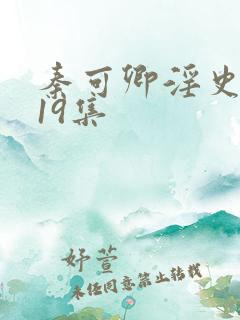 秦可卿淫史
19集
妤萱
未经同意禁止转载